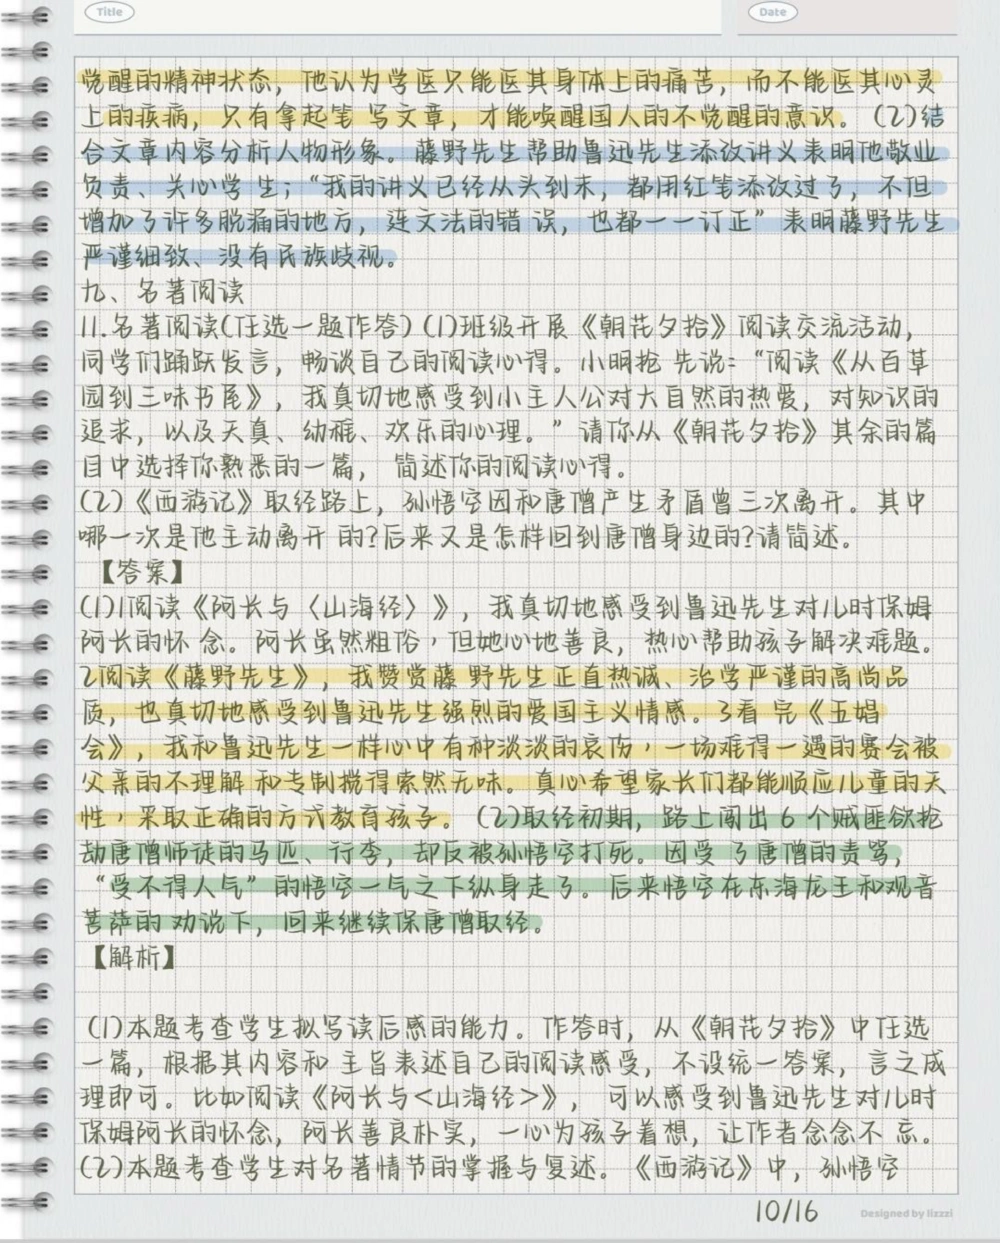 Title
Date
觉醒的精神状态，他认为学医只能医其身体上的痛苦，而不能医其心灵
上的疾病，只有拿起笔 写文章，才能唤醒国人的不觉醒的意识。(2)结
合文章内容分析人物形象。藤野先生帮助鲁迅先生添改讲义表明他敬业
负责、关心学 生；“我的讲义已经从头到末，都用红笔添改过了，不但
增加了许多脱漏的地方，连文法的错 误，也都一一订正” 表明藤野先生
严谨细致、没有民族歧视。
九、名著阅读
11.名著阅读(任选一题作答) (1)班级开展《朝花夕拾》阅读交流活动，
同学们踊跃发言，畅谈自己的阅读心得。小明抢 先说：“阅读《从百草
园到三味书屋》，我真切地感受到小主人公对大自然的热爱，对知识的
追求，以及天真、幼稚、欢乐的心理。”请你从《朝花夕拾》其余的篇
目中选择你熟悉的一篇，简述你的阅读心得。
(2)《西游记》取经路上，孙悟空因和唐僧产生矛盾曾三次离开。其中
哪一次是他主动离开 的?后来又是怎样回到唐僧身边的?请简述。
【答案】
(1)1阅读《阿长与〈山海经〉》，我真切地感受到鲁迅先生对儿时保姆
阿长的怀 念。阿长虽然粗俗，但她心地善良，热心帮助孩子解决难题。
2阅读《藤野先生》，我赞赏藤 野先生正直热诚、治学严谨的高尚品
质，也真切地感受到鲁迅先生强烈的爱国主义情感。3看 完《五猖
会》，我和鲁迅先生一样心中有种淡淡的哀伤，一场难得一遇的赛会被
父亲的不理解 和专制搅得索然无味。真心希望家长们都能顺应儿童的天
性，采取正确的方式教育孩子。(2)取经初期，路上闯出 6 个贼匪欲抢
劫唐僧师徒的马匹、行李，却反被孙悟空打死。因受 了唐僧的责骂，
“受不得人气”的悟空一气之下纵身走了。后来悟空在东海龙王和观音
菩萨的 劝说下，回来继续保唐僧取经。
【解析】
(1)本题考查学生拟写读后感的能力。作答时，从《朝花夕拾》中任选
一篇，根据其内容和 主旨表述自己的阅读感受，不设统一答案，言之成
理即可。比如阅读《阿长与<山海经>》，可以感受到鲁迅先生对儿时
保姆阿长的怀念，阿长善良朴实，一心为孩子着想，让作者念念不 忘。
(2)本题考查学生对名著情节的掌握与复述。《西游记》中，孙悟空
10/16
Designed by lizzzi